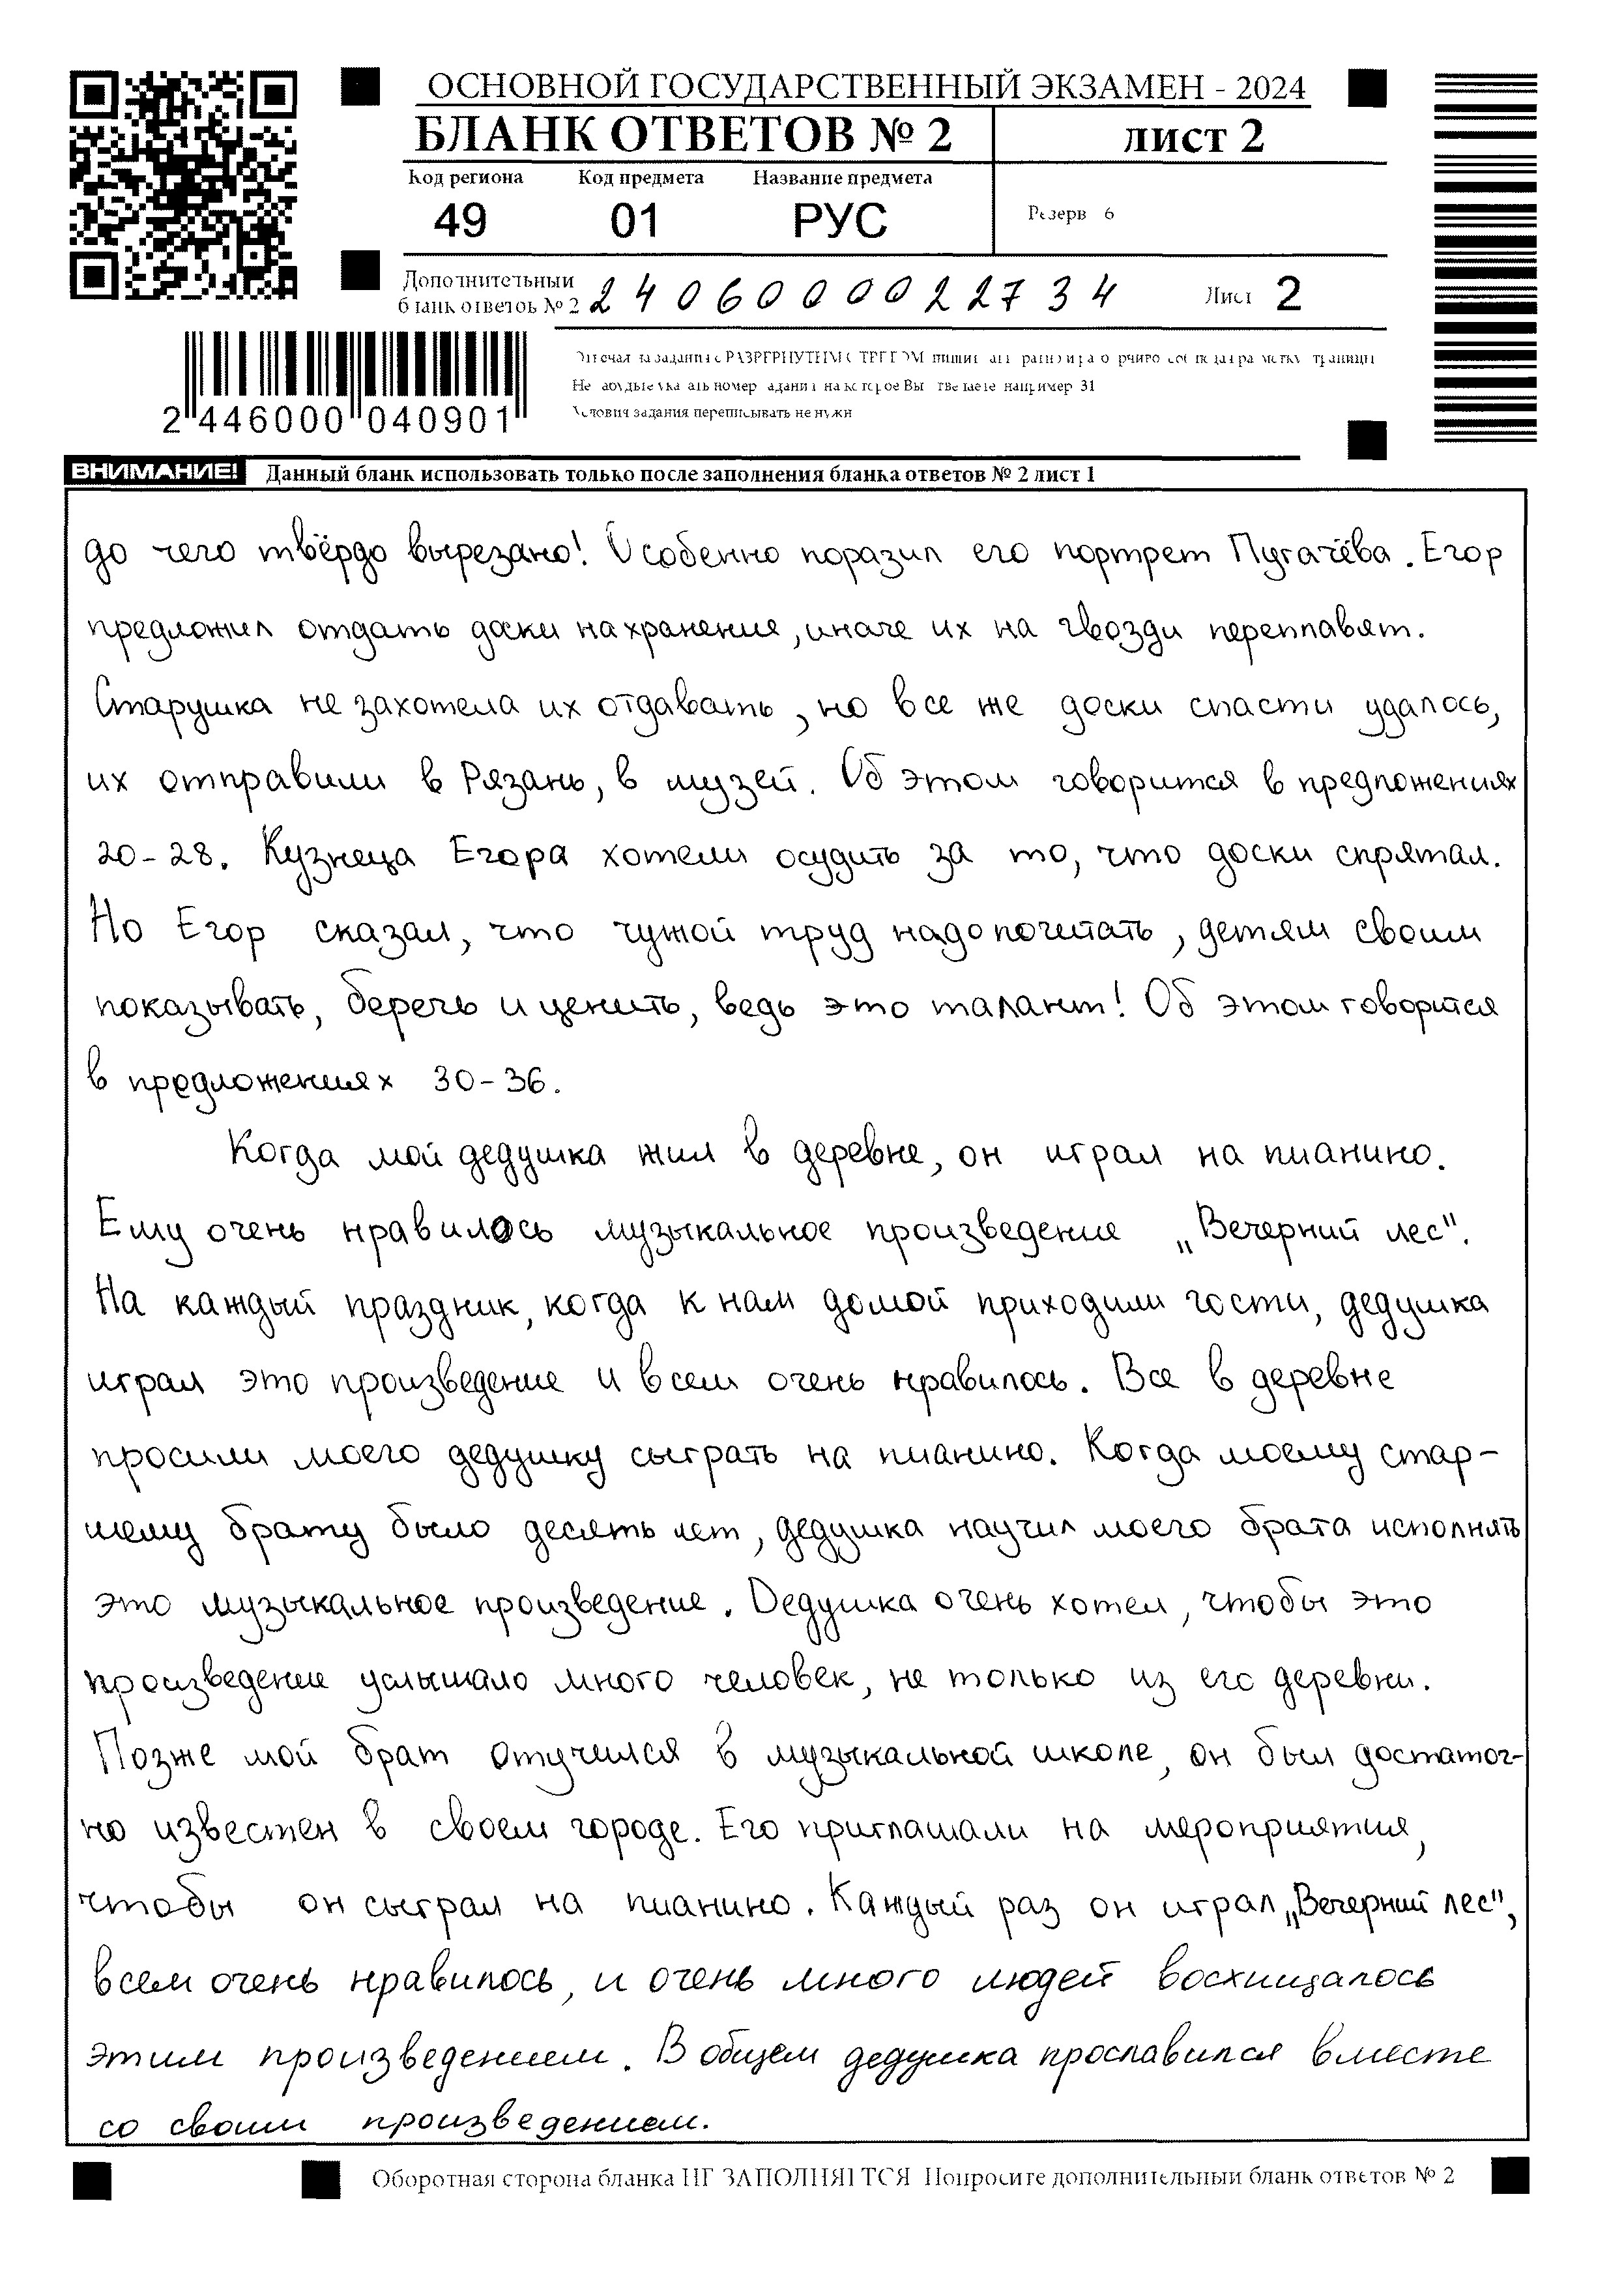 ОСНОВНОЙ ГОСУДАРСТВЕННЫЙ ЭКЗАМЕН - 2024
БЛАНК ОТВЕТОВ № 2 ЛИСТ 2
Код региона Код предмета Название предмета
49 01 РУС Резерв 6
Дополнительный
бланк ответов № 2 2406000022734 Лист 2
2 446000 040901
Условия задания переписывать не нужн
ВНИМАНИЕ! Данный бланк использовать только после заполнения бланка ответов № 2 лист 1
до чего твёрдо вырезано! Особенно поразил его портрет Пугачёва. Егор
предложил отдать доски на хранение, иначе их на гвозди переплавят.
Старушка не захотела их отдавать, но все же доски спасти удалось,
их отправили в Рязань, в музей. Об этом говорится в предложениях
20-28. Кузнеца Егора хотели осудить за то, что доски спрятал.
Но Егор сказал, что чужой труд надо почитать, детям своим
показывать, беречь и ценить, ведь это талант! Об этом говорится
в предложениях 30-36.
Когда мой дедушка жил в деревне, он играл на пианино.
Ему очень нравилось музыкальное произведение „Вечерний лес".
На каждый праздник, когда к нам домой приходили гости, дедушка
играл это произведение и всем очень нравилось. Все в деревне
просили моего дедушку сыграть на пианино. Когда моему стар-
шему брату было десять лет, дедушка научил моего брата исполнять
это музыкальное произведение. Дедушка очень хотел, чтобы это
произведение услышало много человек, не только из его деревни.
Позже мой брат отучился в музыкальной школе, он был достаточ-
но известен в своем городе. Его приглашали на мероприятия,
чтобы он сыграл на пианино. Каждый раз он играл „Вечерний лес",
всем очень нравилось, и очень много людей восхищалось
этим произведением. В общем дедушка прославился вместе
со своим произведением.
Оборотная сторона бланка НЕ ЗАПОЛНЯЕТСЯ Попросите дополнительный бланк ответов № 2